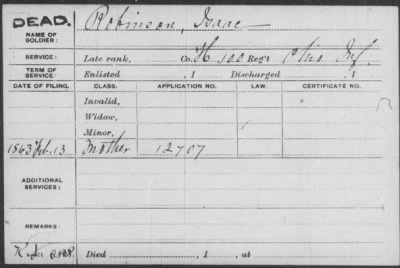 DEAD. Robinson, Isaac
NAME OF
SOLDIER:
SERVICE: Late rank, Co. H. 100 Regt Ohio Inf.
TERM OF
SERVICE: Enlisted , 1 Discharged , 1
DATE OF FILING. CLASS. APPLICATION NO. LAW. CERTIFICATE NO.
Invalid,
Widow,
Minor,
1863 Feb. 13 Mother 12707
ADDITIONAL
SERVICES:
REMARKS:
Died , 1 , at